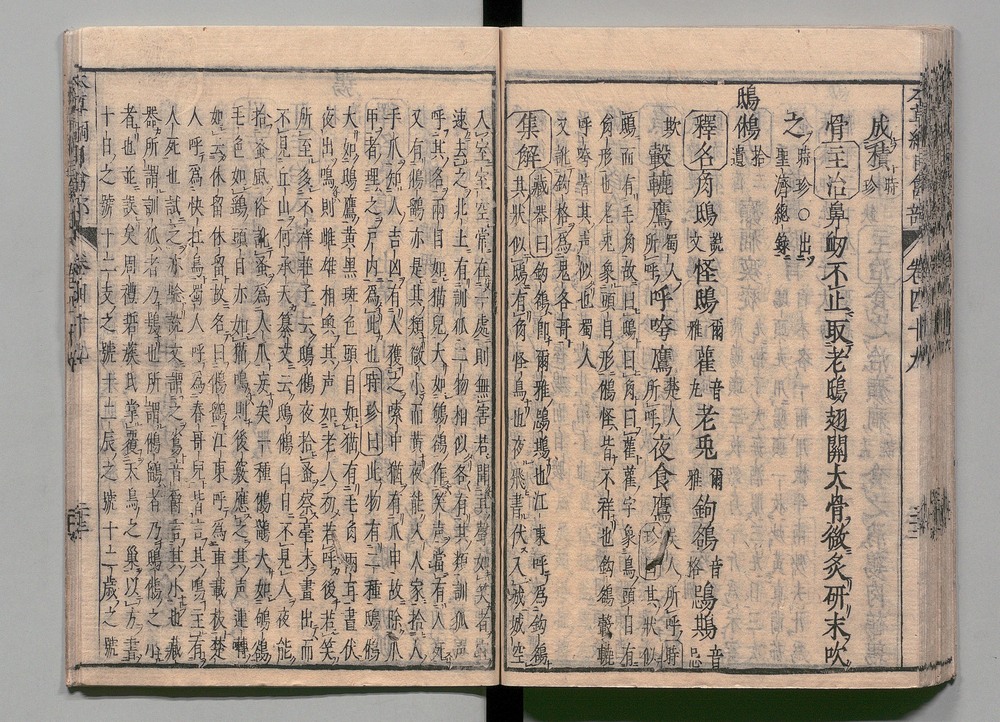 成積時珍
骨主治鼻衂不止取老鴟翅關大骨微灸研末吹
之時珍○出聖濟總錄
鴟鵂拾遺
釋名角鴟說文怪鴟爾雅雚音丸老兎爾雅鉤鵅音格鵋䳢音忌
欺轂轆鷹蜀人所呼呼咵鷹楚人所呼夜食鷹吳人所呼時珍曰其狀似
鴟而有毛角故曰鴟曰角曰雚雚字象鳥頭目有
角形也老兎象頭目形鵂怪皆不祥也鉤鵅轂轆
呼咵皆其声似也蜀人
又訛鉤格爲鬼各哥
集解藏器曰鉤鵅卽爾雅鵋䳢也江東呼爲鉤鵅
其狀似鴟有角怪鳥也夜飛晝伏入城城空
入室室空常在一處則無害若聞其聲如笑者宜
速去之北土有訓狐二物相似各有其類訓狐声
呼其名兩目如猫兒大如鴝鵒作笑声當有人死
又有鵂鶹亦是其類微小而黄夜能入人家拾人
手爪知人吉凶有人獲之嗉中猶有爪甲故除爪
甲者埋之戸内爲此也時珍曰此物有二種鴟鵂
大如鴟鷹黄黑斑色頭目如猫有毛角兩耳晝伏
夜出鳴則雌雄相喚其声如老人初若呼後若笑
所至多不祥莊子云鴟鵂夜拾蚤察毫末晝出而
不見丘山何承天纂文云鴟鵂白日不見人夜能
拾蚤虱俗訛蚤爲人爪妄矣一種鵂鶹大如鴝鵒
毛色如鷂頭目亦如猫鳴則後竅應之其声連囀
如云休留休留故名曰鵂鶹江東呼爲車載板楚
人呼爲快扛鳥蜀人呼爲春哥兒皆言其鳴主有
人死也試之亦驗說文謂之雟音爵言其小也藏
器所謂訓狐者乃鴞也所謂鵂鶹者乃鴟鵂之小
者也並誤矣周禮硩蔟氏掌覆夭鳥之巢以方書
十日之號十二支之號十二辰之號十二歲之號